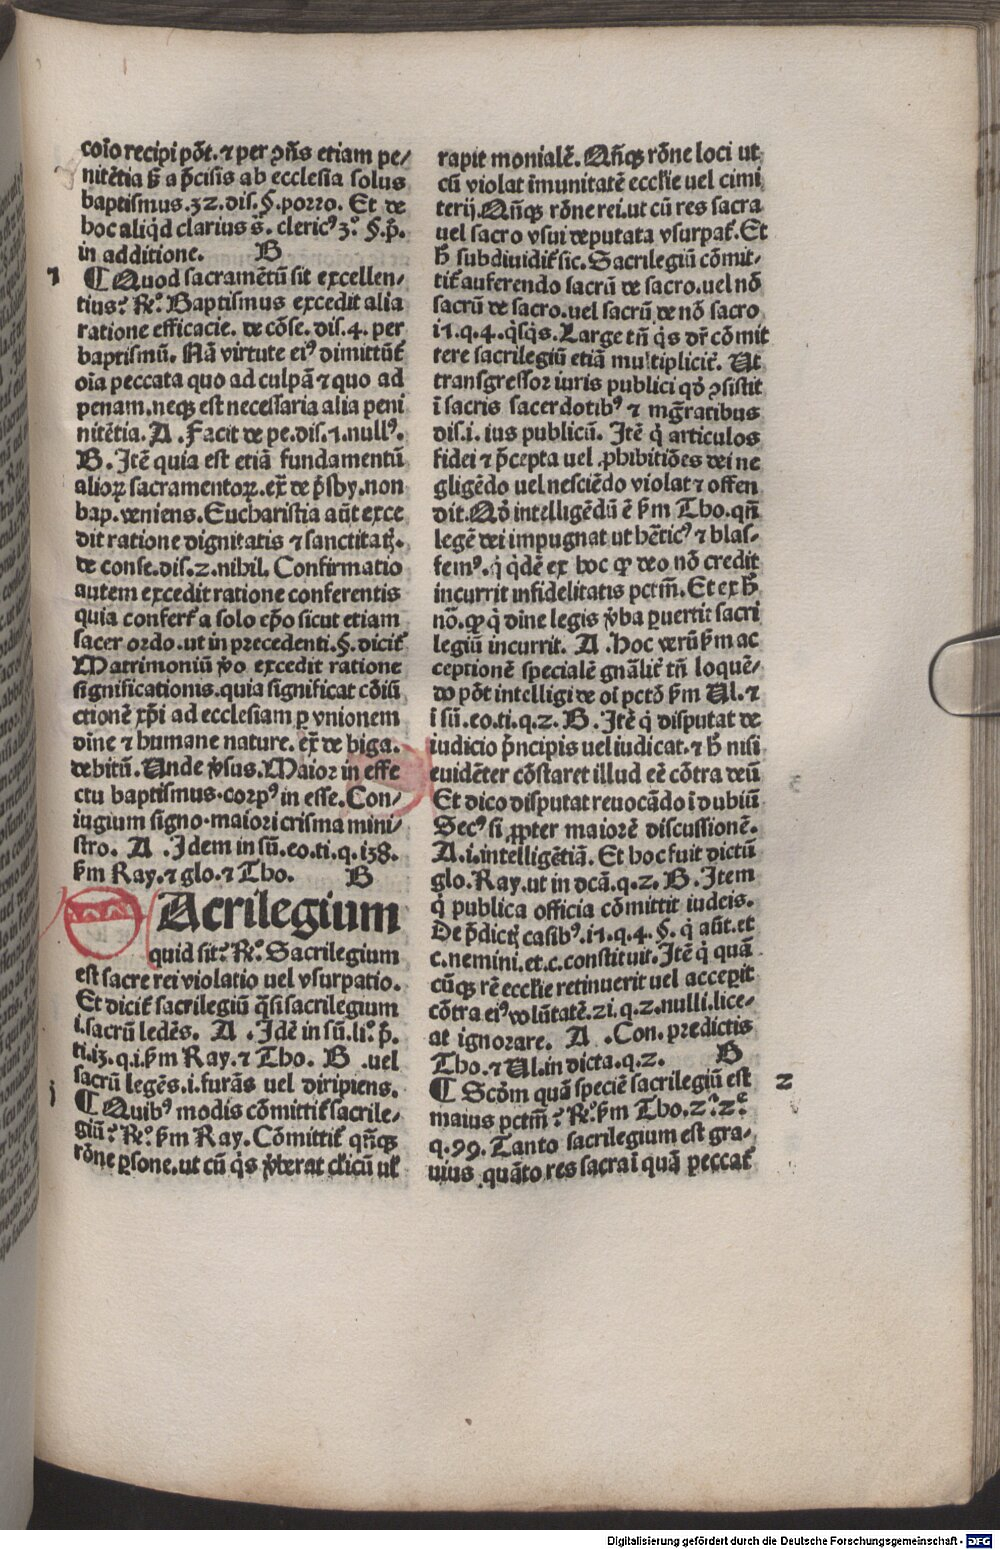 coīo recipi pōt. ⁊ per ꝯn̄s etiam pe/
nitētia ß a p̄cisis ab ecclesia solus
baptismus.32.dis.§.porro. Et de
hoc aliqͥd clarius s̄. clericꝰ 3.° §.p̄.
in additione. B
7
¶ Quod sacramētū sit excellen-
tius? R̄.° Baptismus excedit alia
ratione efficacie. de cōse. dis.4. per
baptismū. Nā virtute eiꝰ dimittūt̄
oīa peccata quo ad culpā ⁊ quo ad
penam.neqꝫ est necessaria alia peni
nitētia. A . Facit de pe.dis.1.nullꝰ.
B. Itē quia est etiā fundamentū
alioꝝ sacramentoꝝ. ex̄ de p̄sby.non
bap. veniens. Eucharistia aūt exce
dit ratione dignitatis ⁊ sanctitatꝭ.
de conse.dis.2.nihil. Confirmatio
autem excedit ratione conferentis
quia confert̄ a solo ep̄o sicut etiam
sacer ordo.ut in precedenti.§.dicit̄
Matrimoniū v̄o excedit ratione
significationis.quia significat cōiū
ctionē xp̄i ad ecclesiam ꝑ vnionem
dīne ⁊ humane nature. ex̄ de biga.
debitū. Unde v̄sus. Maior in effe
ctu baptismus.corpꝰ in esse. Con/
iugium signo.maiori crisma mini/
stro. A . Idem in sū.eo.ti.q.138.
s̄m Ray.⁊ glo.⁊ Tho. B
Acrilegium
quid sit? R̄.° Sacrilegium
est sacre rei violatio uel vsurpatio.
Et dicit̄ sacrilegiū q̄si sacrilegium
i.sacrū ledēs. A . Idē in sū.li.° p̄.
ti.13.q.i.s̄m Ray.⁊ Tho. B .uel
sacrū legēs.i.furās uel diripiens.
¶ Quibꝰ modis cōmittit̄ sacrile-
giū? R̄.° s̄m Ray. Cōmittit̄ qn̄qꝫ
rōne ꝑsone.ut cū qͥs v̄berat cl̄icū ul̄
rapit monialē. Qn̄qꝫ rōne loci ut
cū violat imunitatē eccl̄ie uel cimi
terij. Qn̄qꝫ rōne rei.ut cū res sacra
uel sacro vsui deputata vsurpat̄. Et
h̄ subdiuidit̄ sic. Sacrilegiū cōmit-
tit̄ auferendo sacrū de sacro.uel nō
sacrū de sacro.uel sacrū de nō sacro
i7.q.4.qͥsqͥs. Large tn̄ qͥs dr̄ cōmit
tere sacrilegiū etiā multiplicit̄. Ut
transgressor iuris publici qd̄ ꝯsistit
ī sacris sacerdotibꝰ ⁊ mḡratibus
dis.i. ius publicū. Itē qͥ articulos
fidei ⁊ p̄cepta uel ꝓhibitiōes dei ne
gligēdo uel nesciēdo violat ⁊ offen
dit. Qd̄ intelligēdū ē s̄m Tho. qn̄
legē dei impugnat ut hēticꝰ ⁊ blas-
femꝰ. qͥ qͥdē ex hoc ꝙ deo nō credit
incurrit infidelitatis pctm̄. Et ex h̄
nō. ꝙ qͥ dīne legis v̄ba ꝑuertit sacri
legiū incurrit. A . Hoc verū s̄m ac
ceptionē specialē gn̄alit̄ tn̄ loquē-
do pōt intelligi de oī pctō s̄m Ul. ⁊
i sū.eo.ti.q.2. B . Itē qͥ disputat de
iudicio p̄ncipis uel iudicat.⁊ h̄ nisi
euidēter cōstaret illud eē cōtra deū
Et dico disputat reuocādo ī dubiū
Secꝰ si ꝓpter maiorē discussionē.
A.i.intelligētiā. Et hoc fuit dictū
glo. Ray.ut in dcā.q.2. B . Item
qͥ publica officia cōmittit iudeis.
De p̄dictꝭ casibꝰ.i7.q.4.§. qͥ aūt.et
c.nemini.et.c.constituit. Itē qͥ quā
cūqꝫ rē eccl̄ie retinuerit uel acceꝑit
cōtra eiꝰ volūtatē.2i.q.2.nulli.lice-
at ignorare. A . Con. predictis
Tho.⁊ Ul.in dicta.q.2. B
2
¶ Scd̄m quā speciē sacrilegiū est
maius pctm̄? R̄.° s̄m Tho.2.ª 2.ᵉ
q.99. Tanto sacrilegium est gra-
uius quāto res sacra ī quā peccat̄
Digitalisierung gefördert durch die Deutsche Forschungsgemeinschaft - DFG